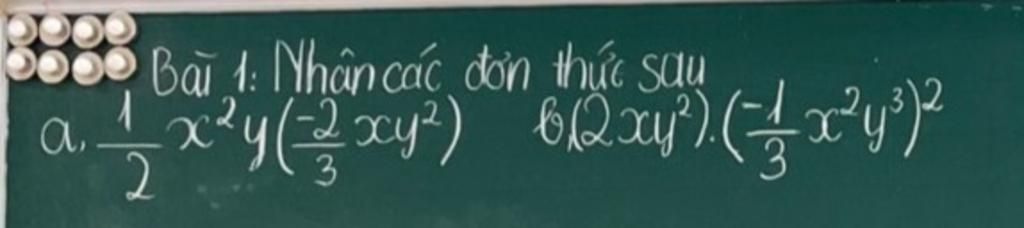 Bài 1: Nhân các đơn thức sau
a. \frac{1}{2} x²y(\frac{-2}{3} xy²) b, (2xy²).(\frac{-1}{3} x²y³)²